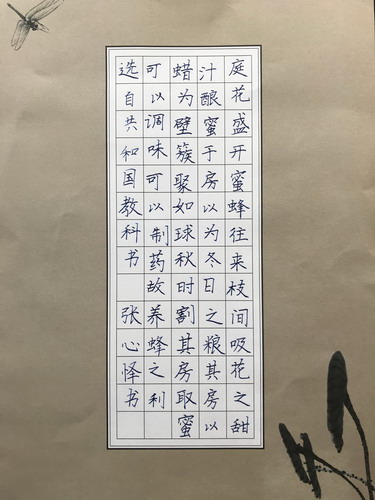 庭花盛开蜜蜂往来枝间吸花之甜
汁酿蜜于房以为冬日之粮其房以
蜡为壁簇聚如球秋时割其房取蜜
可以调味可以制药故养蜂之利
选自共和国教科书 张心怿书